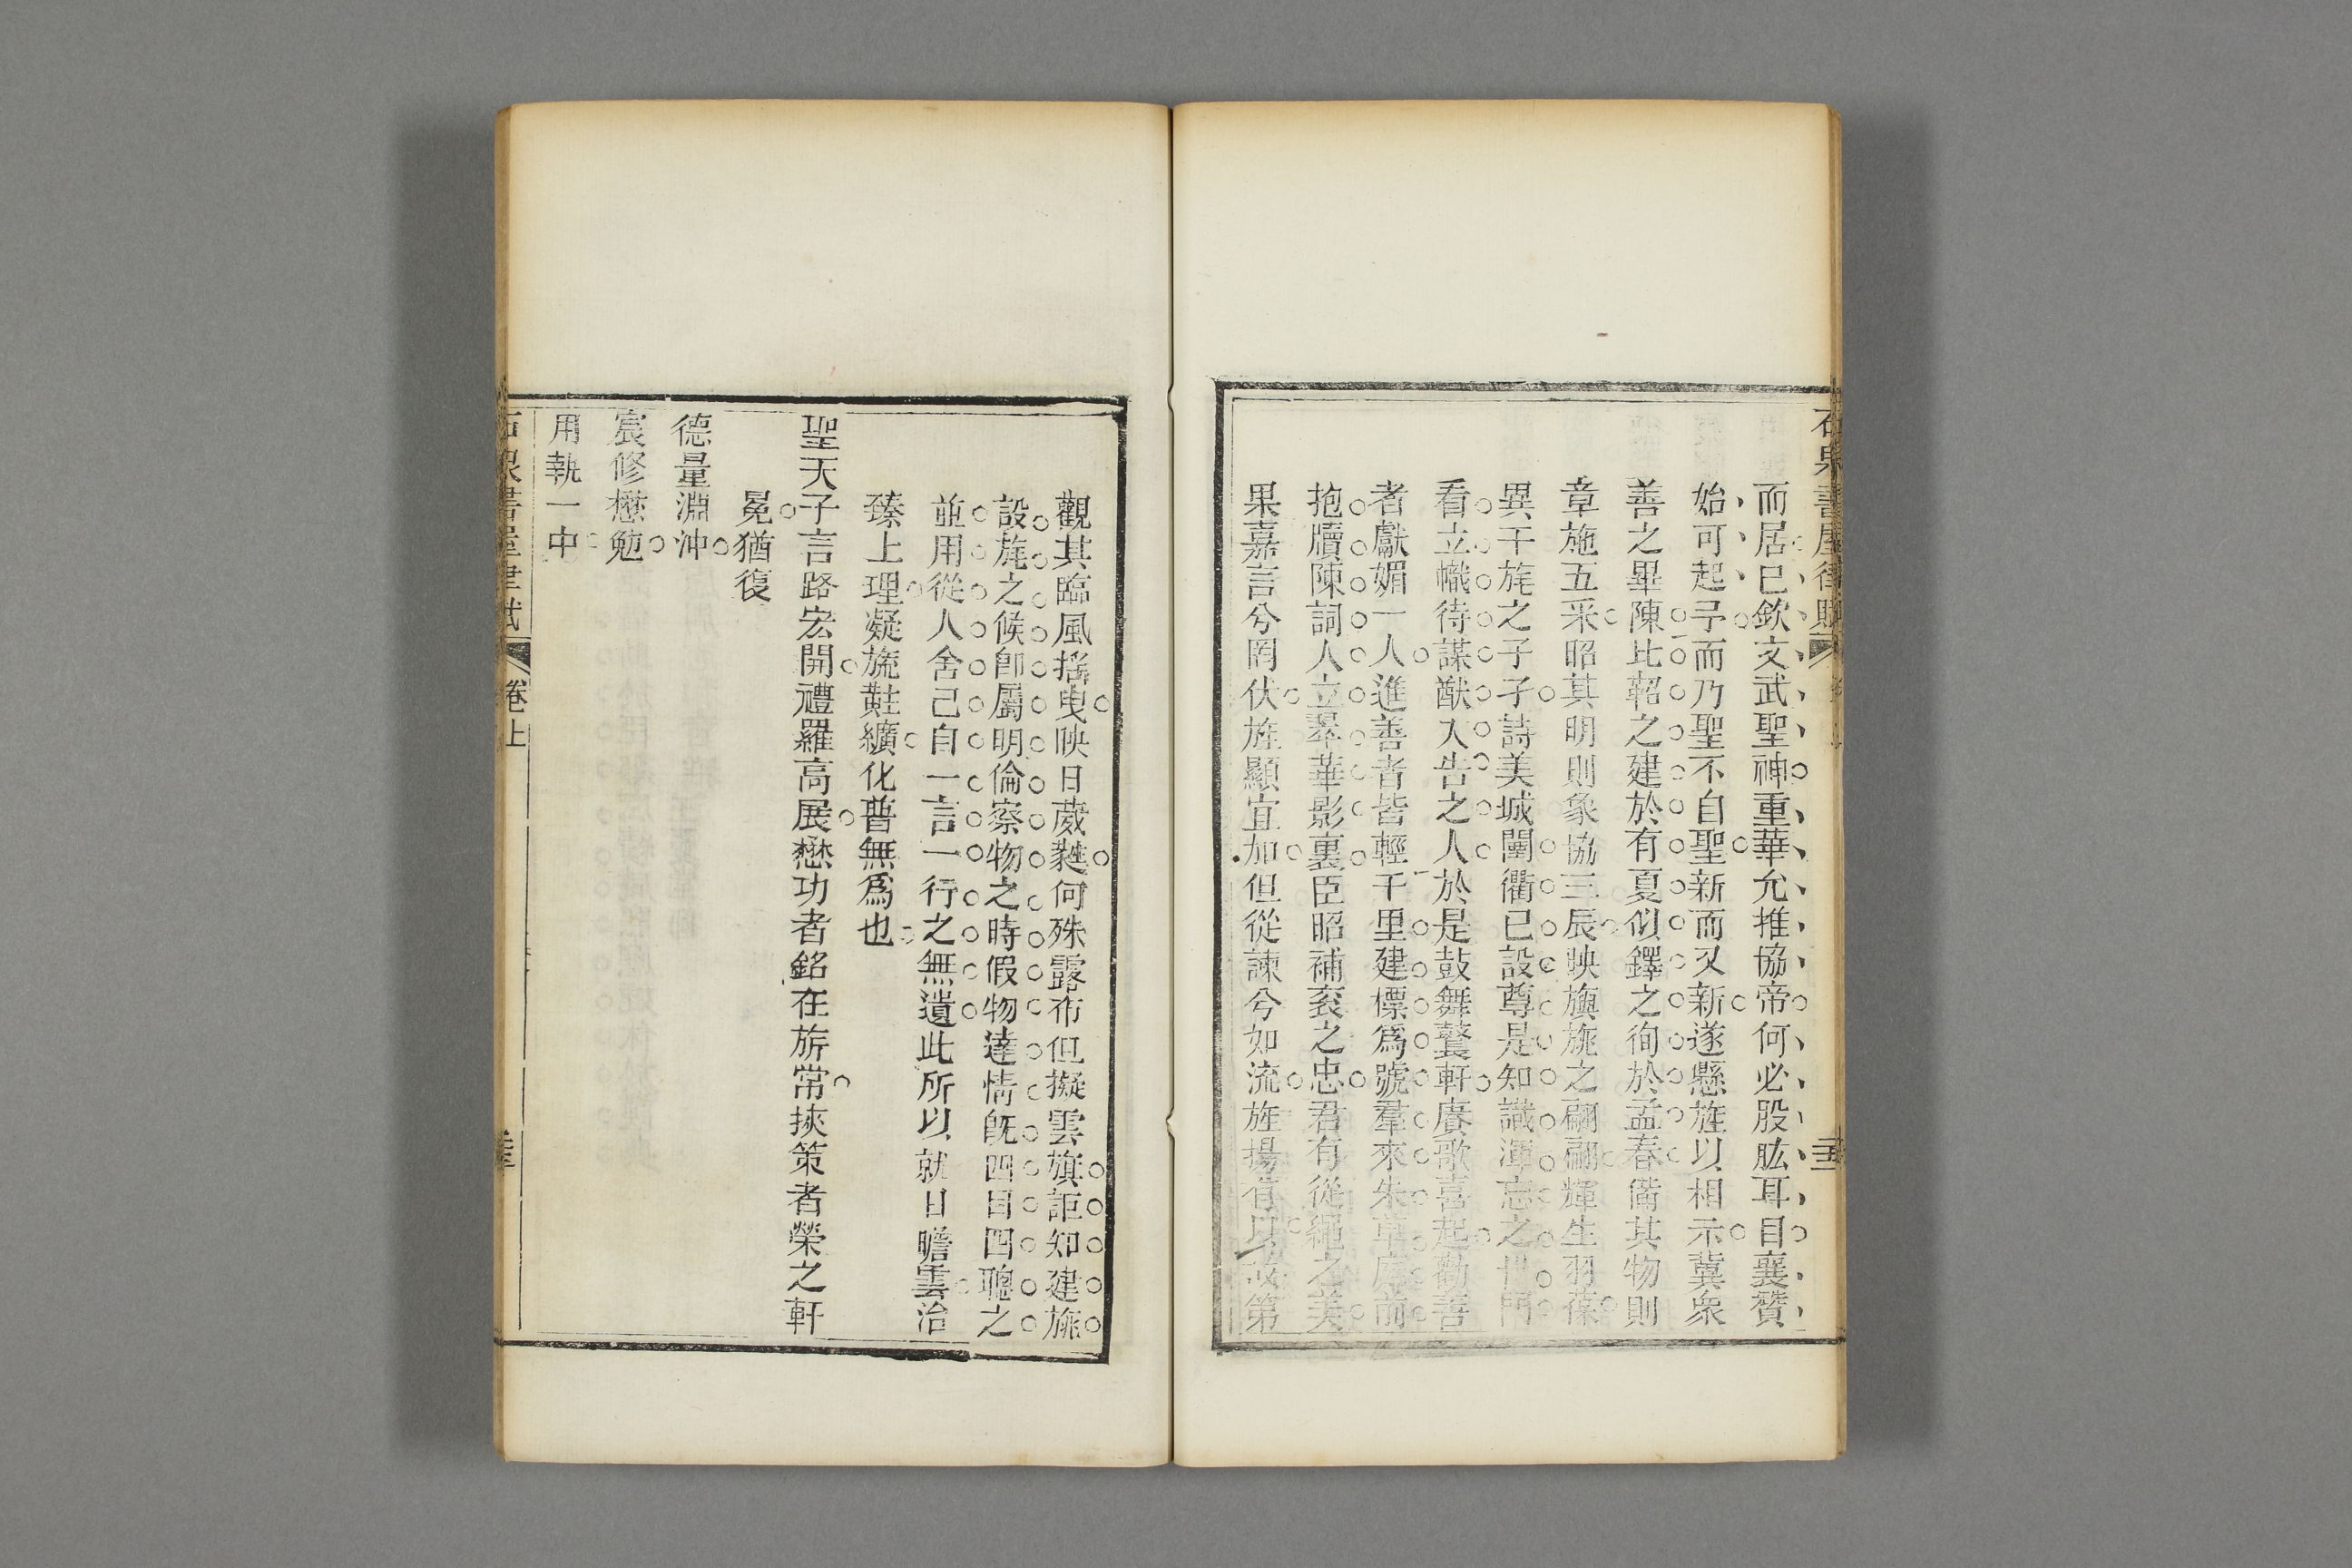 石泉書屋律賦
而居巳欽文武聖神重華允推協帝何必股肱耳目襄贊
始可起予而乃聖不自聖新而又新遂懸旌以相示冀衆
善之畢陳比鞀之建於有夏似鐸之徇於孟春備其物則
章施五采昭其明則象協三辰映旟旐之翩翩輝生羽葆
異干旄之孑孑詩美城闉衢已設尊是知讜渾忘之世門
看立幟待謀猷入告之人於是鼓舞鼚軒賡歌喜起勸善
者獻媚一人進善者皆輕千里建標爲號羣來朱草庭前
抱牘陳詞人立翠華影裏臣昭補衮之忠君有從繩之美
果嘉言兮罔伏旌顯宜加但從諫兮如流旌揚有以故第
觀其臨風搖曳映日葳蕤何殊露布但擬雲旗詎知建旐
設旄之候卽屬明倫察物之時假物達情旣四目四聰之
並用從人舍己自一言一行之無遺此所以就日瞻雲治
臻上理凝旒黈纊化普無爲也
聖天子言路宏開禮羅高展懋功者銘在旂常挾策者榮之軒
冕猶復
德量淵沖
宸修懋勉
用執一中
石泉書屋律賦
卷上